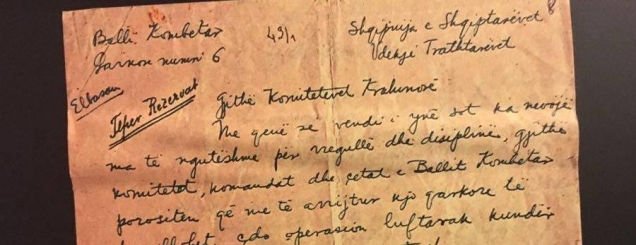 Balli Kombetar 49/1 Shqipnija e Shqiptarëvet 8
Qarkore numri 6 Vdekje Trathtarëvet
Elbasan
Tepër Rezervat
Gjithë Komitetevet Krahinorë
Me qenë se vendi i ynë sot ka nevojë
ma të ngutëshme për rregullë dhe disiplinë, gjithë
komitetet, komandat dhe çetat e Ballit Kombëtar
porositen që me të arrijtur kjo qarkore të
çdo operasion luftarak kundër